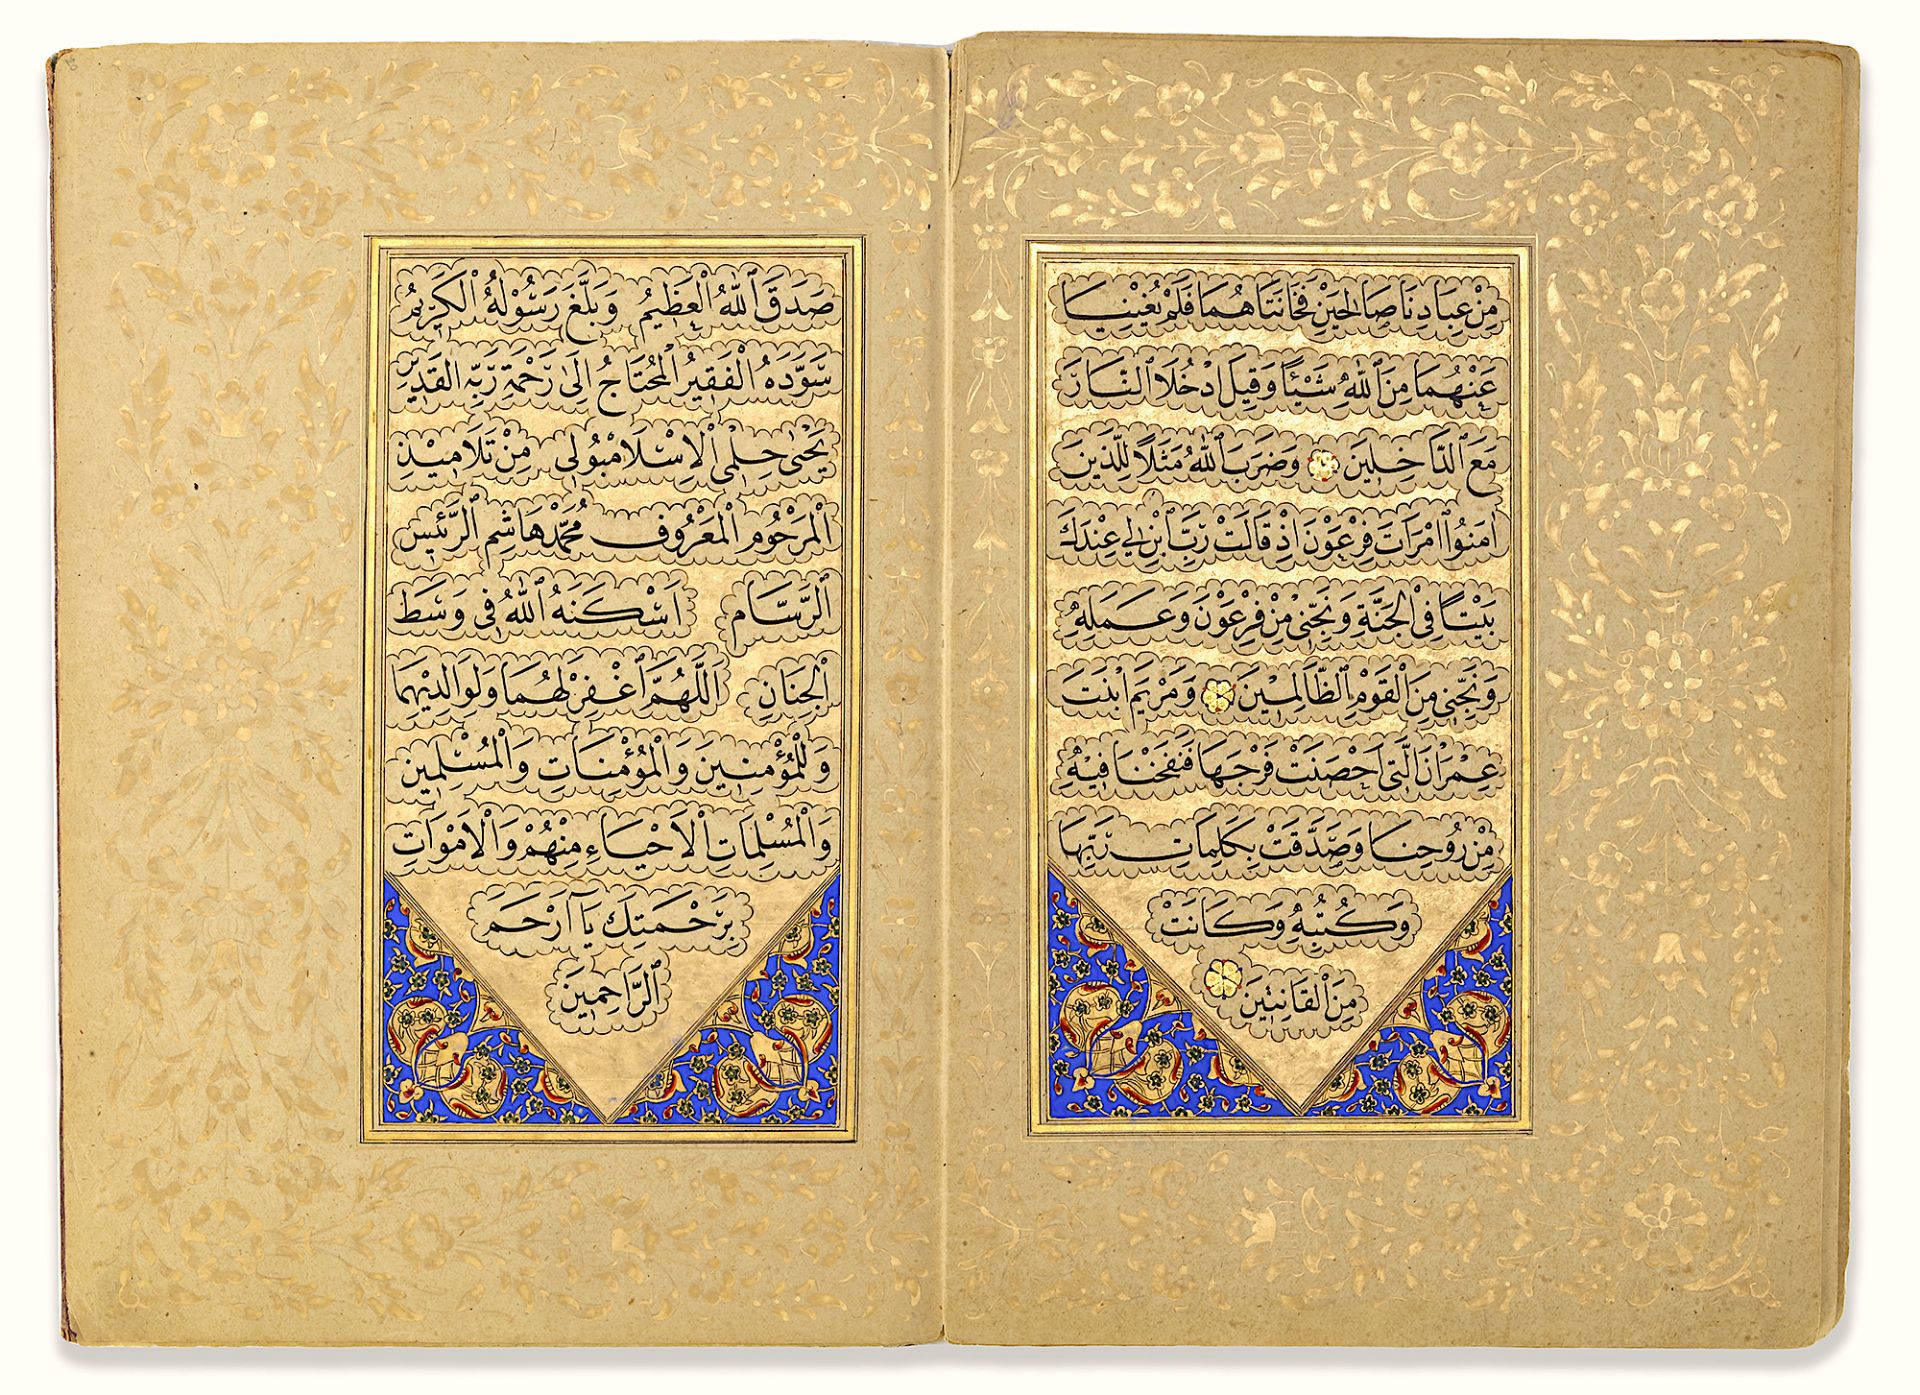 مِنْ عِبَادِنَا صَالِحَيْنِ فَخَانَتَاهُمَا فَلَمْ يُغْنِيَا
عَنْهُمَا مِنَ ٱللّٰهِ شَيْئًا وَقِيلَ ادْخُلَا ٱلنَّارَ
مَعَ ٱلدَّاخِلِينَ وَضَرَبَ ٱللّٰهُ مَثَلًا لِلَّذِينَ
اٰمَنُوا امْرَاَتَ فِرْعَوْنَ اِذْ قَالَتْ رَبِّ ابْنِ لِي عِنْدَكَ
بَيْتًا فِي الْجَنَّةِ وَنَجِّنِي مِنْ فِرْعَوْنَ وَعَمَلِهِ
وَنَجِّنِي مِنَ الْقَوْمِ ٱلظَّالِمِينَ وَمَرْيَمَ ابْنَتَ
عِمْرَانَ الَّتِي اَحْصَنَتْ فَرْجَهَا فَنَفَخْنَا فِيهِ
مِنْ رُوحِنَا وَصَدَّقَتْ بِكَلِمَاتِ رَبِّهَا
وَكُتُبِهِ وَكَانَتْ
مِنَ الْقَانِتِينَ
صَدَقَ ٱللّٰهُ الْعَظِيمُ وَبَلَّغَ رَسُولُهُ الْكَرِيمُ
سَوَّدَهُ الْفَقِيرُ الْمُحْتَاجُ اِلَى رَحْمَةِ رَبِّهِ الْقَدِيرِ
يَحْيٰى حِلْمِى الْاِسْلَامْبُولِى مِنْ تَلَامِيذِ
الْمَرْحُومِ الْمَعْرُوفِ مُحَمَّدْ هَاشِمِ ٱلرَّئِيسِ
ٱلرَّسَّامِ اَسْكَنَهُ ٱللّٰهُ فِى وَسَطِ
الْجِنَانِ اَللّٰهُمَّ اغْفِرْ لَهُمَا وَلِوَالِدِيْهِمَا
وَلِلْمُؤْمِنِينَ وَالْمُؤْمِنَاتِ وَالْمُسْلِمِينَ
وَالْمُسْلِمَاتِ الْاَحْيَاءِ مِنْهُمْ وَالْاَمْوَاتِ
بِرَحْمَتِكَ يَا اَرْحَمَ
ٱلرَّاحِمِينَ